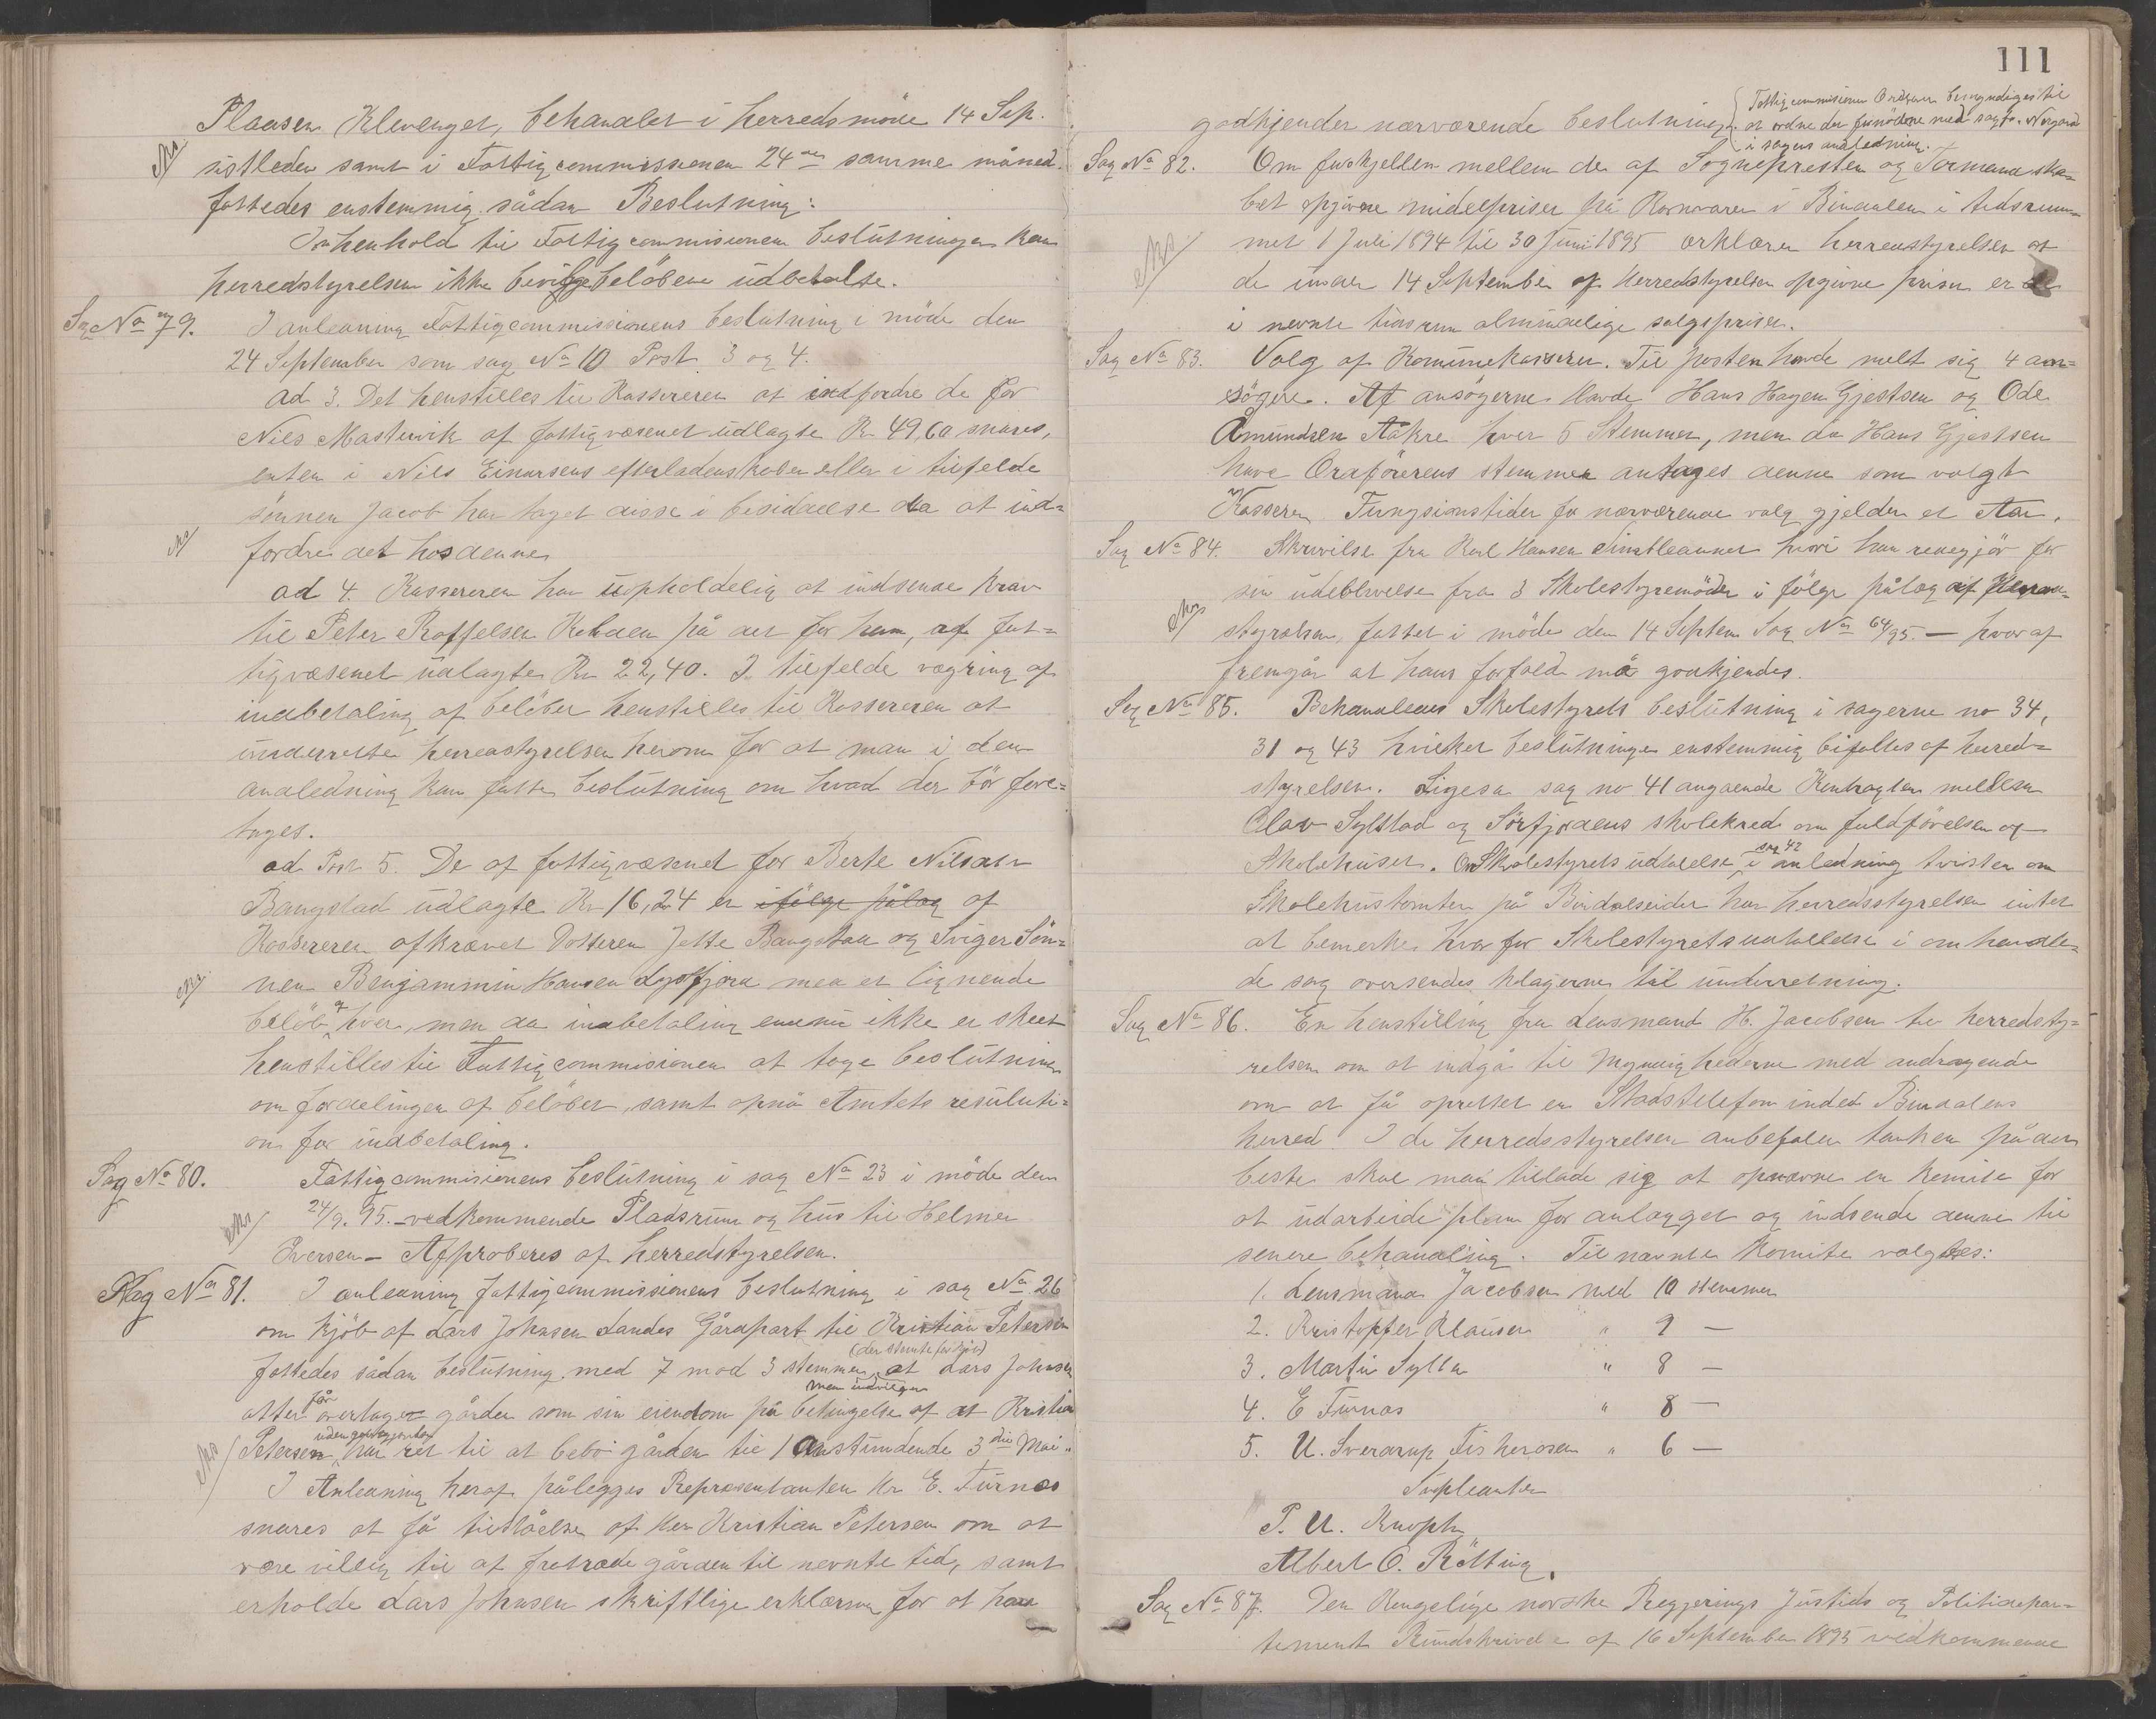 Pladsen Klevenget, behandlet i herredsmöde 14 Sep.
sistleden samt i Fattigcommissionen 24de samme måned.
fattedes enstemmig sådan Beslutning:
I henhold til Fattigcommisionens beslutninger kan
herredstyrelsen ikke bevilge belöbene udbetalte.
Sag No 79. I anledning Fattigcommissionens beslutning i möde den
24 September som sag No 10 Post 3 og 4.
ad 3. Det henstilles til Kassereren at indfordre de for
Niels Mastervik af fattigvæsenet udlagte Kr 49,60 snares,
enten i Nils Einarsens efterladenskaber eller i tilfelde
sönnen Jacob har taget disse i besiddelse da at ind=
fordre det hos denne.
ad 4. Kassereren har uopholdelig at indsende Krav
til Peter Roffelsen på det for ham, af fat=
tigvæsenet udlagte Kr 22,40. I tilfelde vægring af
indbetaling af belöbet henstilles til Kassereren at
underrette herredstyrelsen herom for at man i den
anledning kan fatte beslutning om hvad der bör fore=
tages.
ad Post 5. De af fattigvæsenet for Berte Nilsdatr
Bangstad udlagte Kr 16,24 er ifölge pålag af
Kassereren afkrævet Datteren Jette Bangstad og Sviger Sön=
nen Benjammin Hansen med et lignende
belöb hver, men da indbetaling endnu ikke er skeet
henstilles til Fattigcommisionen at tage beslutning
om fordelingen af belöbet, samt opnå Amtets resuluti=
on for indbetaling.
Sag No 80. Fattigcommisionens beslutning i sag No 23 i möde den
24/9. 95. vedkommende Pladsrum og hus til Helmer
Iversen - Approberes af herredstyrelsen.
Sag No 81. I anledning fattigcommissionens beslutning i sag No 26
om kjöb af Lars Johnsen Landes Gårdpart til Kristian Petersen
fattedes sådan beslutning med 7 mod 3 stemmer (der stemte for kjöb) at Lars Johnsen
atter får overtage gården som sin eiendom på betingelse af at Kristian
Petersen uden godtgjörelse har ret til at bebo gården til 1 Anstundende 3die Mai.
I Anledning heraf pålegges Repræsentanten Hr E. Furnes
snares at få tilståelse af Her Kristian Petersen om at
være villig til at fretræde gården til nevnte tid, samt
erholde Lars Johnsen skriftlige erklæring for at han
111
godkjender nærværende beslutning. Fattigcommisionens Ordförer bemyndiges til
at ordne det fornödne med sagf. Norgard
i sagens anledning.
Sag No 82. Om forskjellen mellem de af Sognepresten og Formandska=
bet opgivne midelpriser på Kornvarer i Bindalen i tidsrum=
met 1 Juli 1894 til 30 Juni 1895 erklærer herredstyrelsen at
de under 14 September af Herredstyrelsen opgivne priser er de
i nevnte tidsrum almindelige salgspriser.
Sag No 83. Valg af Komunekasserer. Til posten havde melt sig 4 an=
sögere. Af ansögerne havde Hans Hagen Gjestsen og Ode
Amundsen Aakre hver 5 Stemmer, men da Hans Gjestsen
have Ordförerens stemmer antages denne som valgt
Kasserer. Fungsionstiden for nærværende valg gjelder et Aar.
Sag No 84. Skrivelse fra Karl Hansen hvori han redegjör for
sin udeblivelse fra 3 Skolestyremöder i fölge pålæg af Herred=
styrelsen, fattet i möde den 14 Septem Sag No 64/95. — hvoraf
fremgår at hans forfald må godkjendes.
Sag No 85. Behandledes Skolestyrets beslutning i sagerne no 34,
31 og 43 hvilke beslutninger enstemmig bifaltes af herred=
styrelsen. Ligesa sag no 41 angaende Kontragten mellem
Olav Sylstad og Sörfjordens skolekreds om fuldförelsen af
Skolehuset. Om Skolestyrets udtalelse sag 42 i anledning tvisten om
Skolehustomten på Bindalseidet har herredsstyrelsen intet
at bemerke. hvorfor Skolestyrets udtallelse i omhandle=
de sag oversendes klagerne til underretning.
Sag No 86. En henstilling fra Lensmand H. Jacobsen til herredsty=
relsen om at indgå til Myndighederne med andragende
om at få oprettet en Stadstelefon inded Bindalens
herred. I det herredsstyrelsen anbefaler tanken på det
beste skal man tillade sig at opnævne en komite for
at udarbeide plan for anlægget og indsende denne til
senere behandling. Til nævnte Komite valgtes:
1. Lensmand Jacobsen med 10 stemmer
2. Kristoffer Klausen " 9 —
3. Martin Sylten " 8 —
4. E Furnes " 8 —
5. U. Sverdrup " 6 —
Supleanter
P. U. Knoph
Albert O. Rölting.
Sag No 87. Den Kongelige norske Regjerings Justids og Politidepar=
tement Rundskrivelse af 16 September 1895 vedkommende